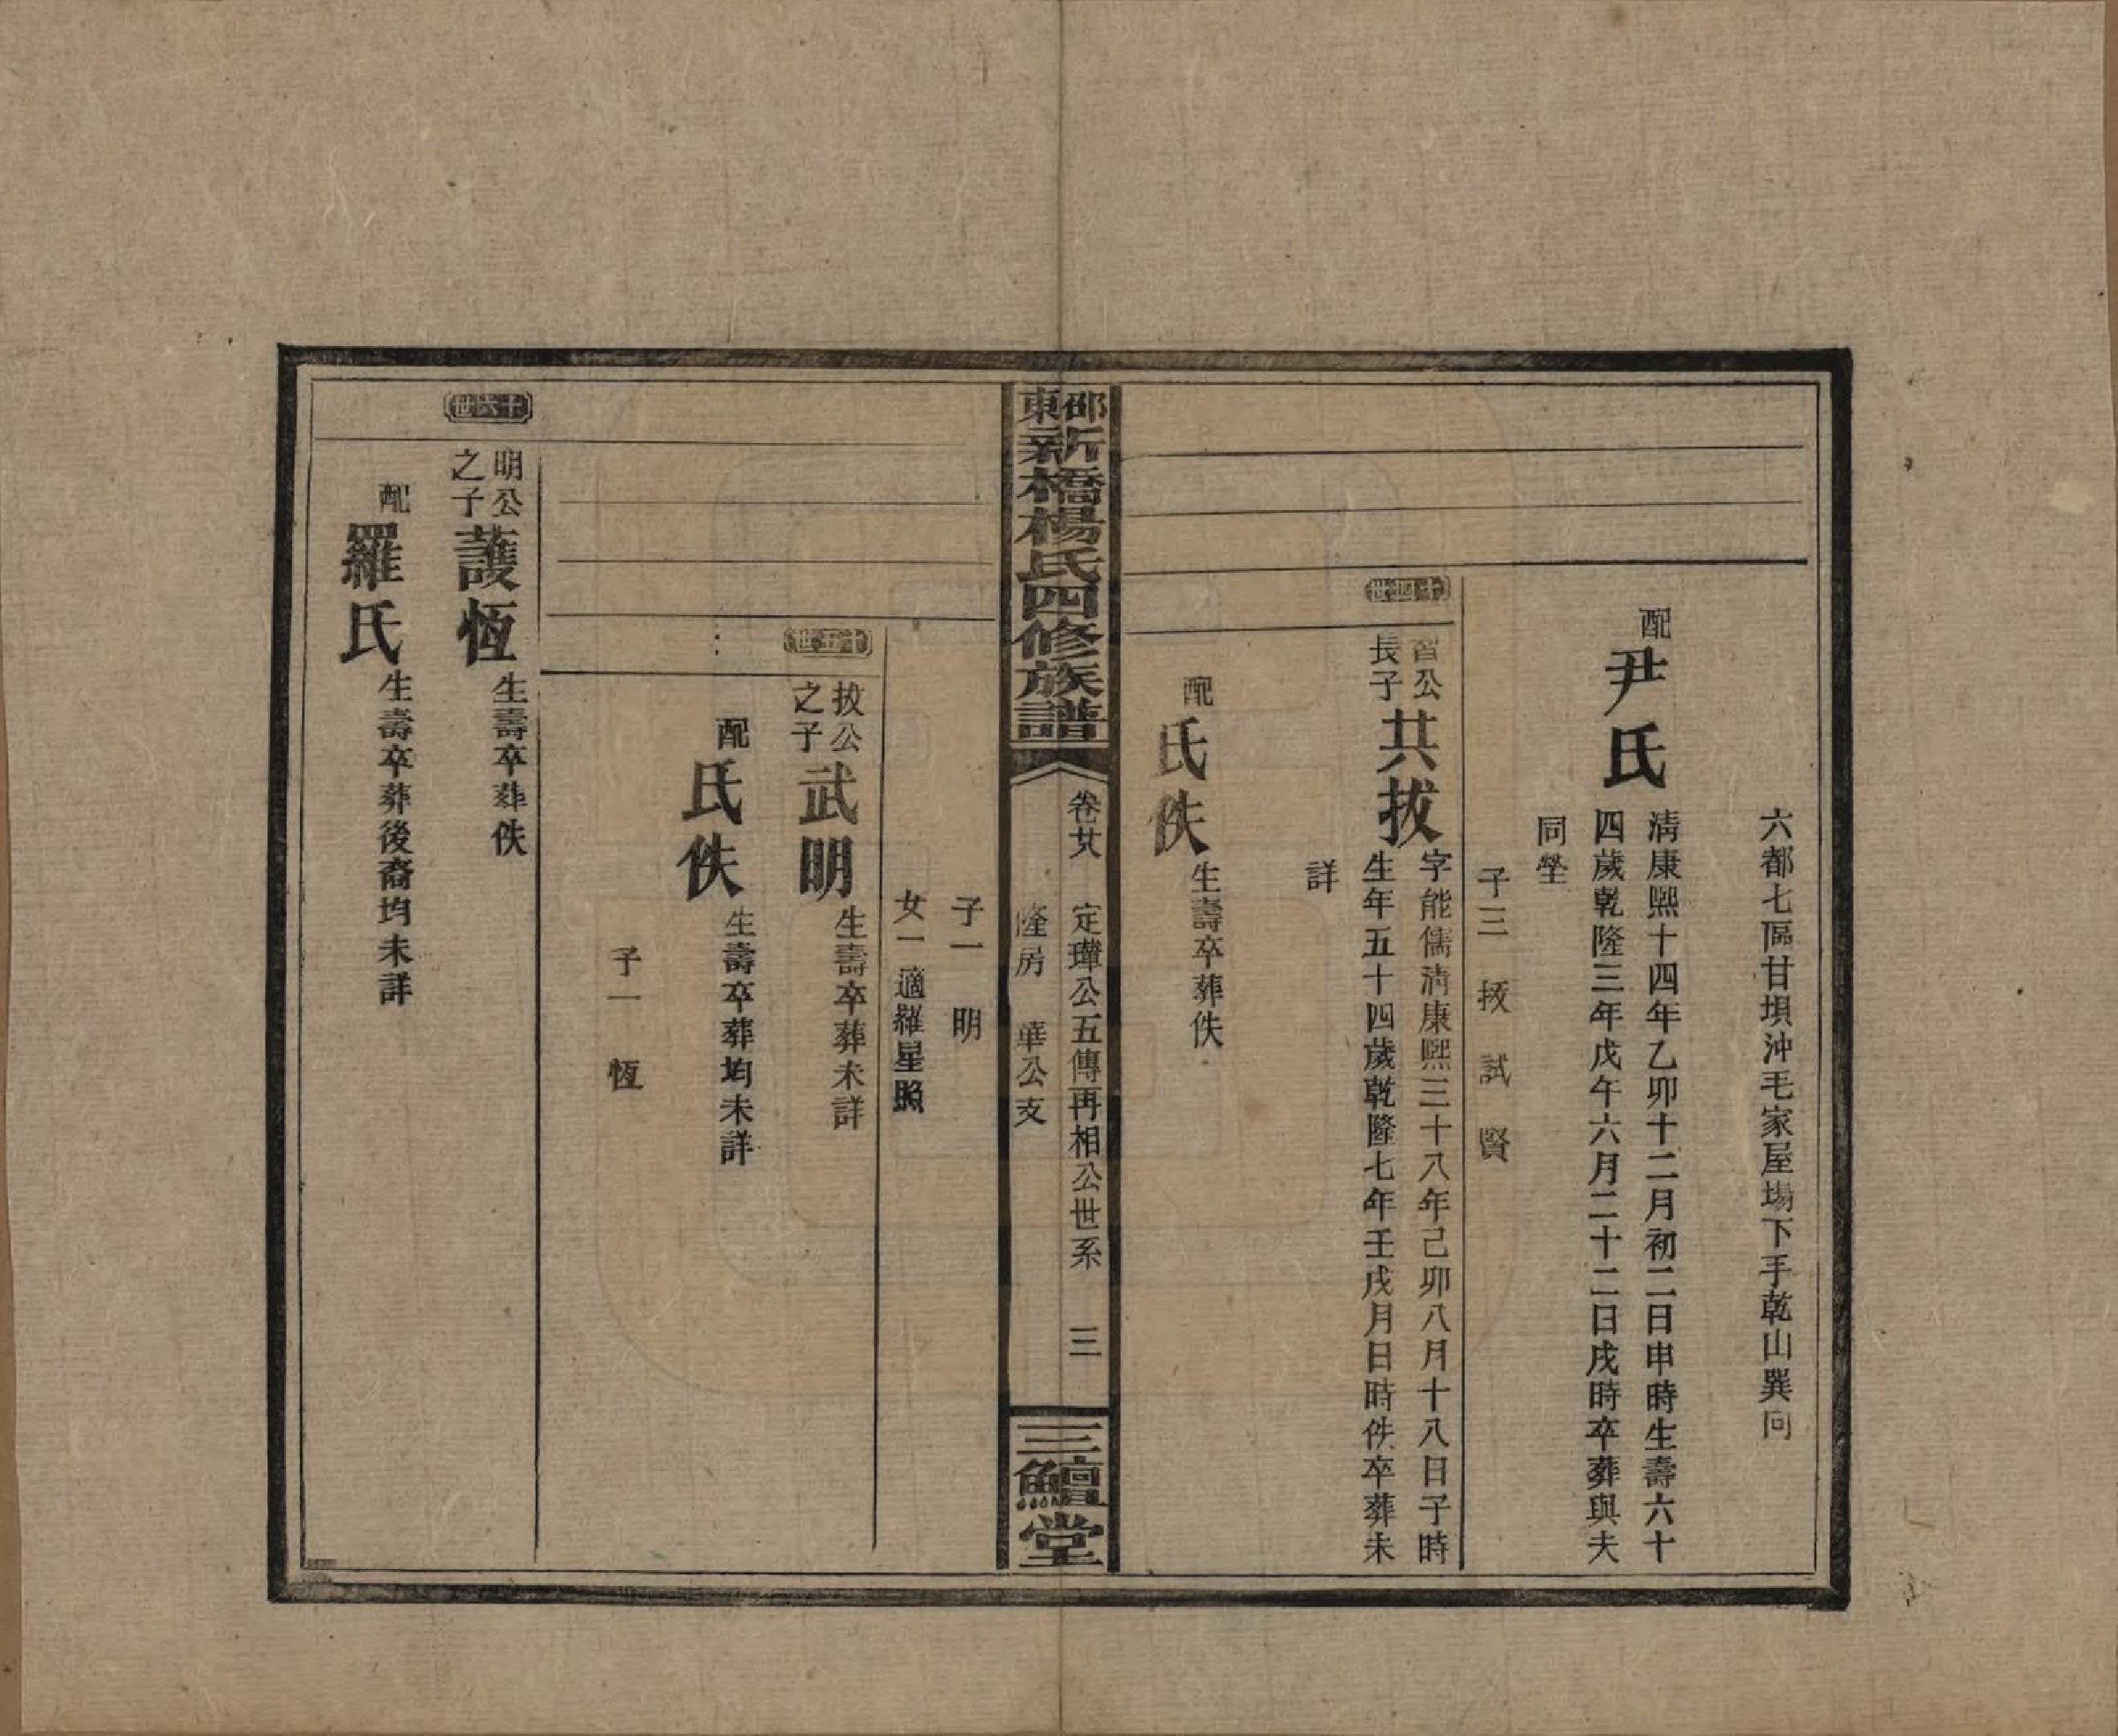 六都七區甘垻沖毛家屋場下手乾山巽向
配
尹氏
清康熙十四年乙卯十二月初二日申時生壽六十
四歲乾隆三年戊午六月二十二日戌時卒葬與夫
同塋
子三 拔 試 賢
十四世
公
長子
共拔
字能儒清康熙三十八年己卯八月十八日子時
生年五十四歲乾隆七年壬戌月日時佚卒葬未
詳
配
氏佚
生壽卒葬佚
邵東
新橋楊氏四修族譜
卷廿 定瑋公五傳再相公世系 三
隆房 華公支
三鱣堂
子一 明
女一 適羅星照
十五世
拔公
之子
武明
生壽卒葬未詳
配
氏佚
生壽卒葬均未詳
子一 恆
十六世
明公
之子
護恆
生壽卒葬佚
配
羅氏
生壽卒葬後裔均未詳